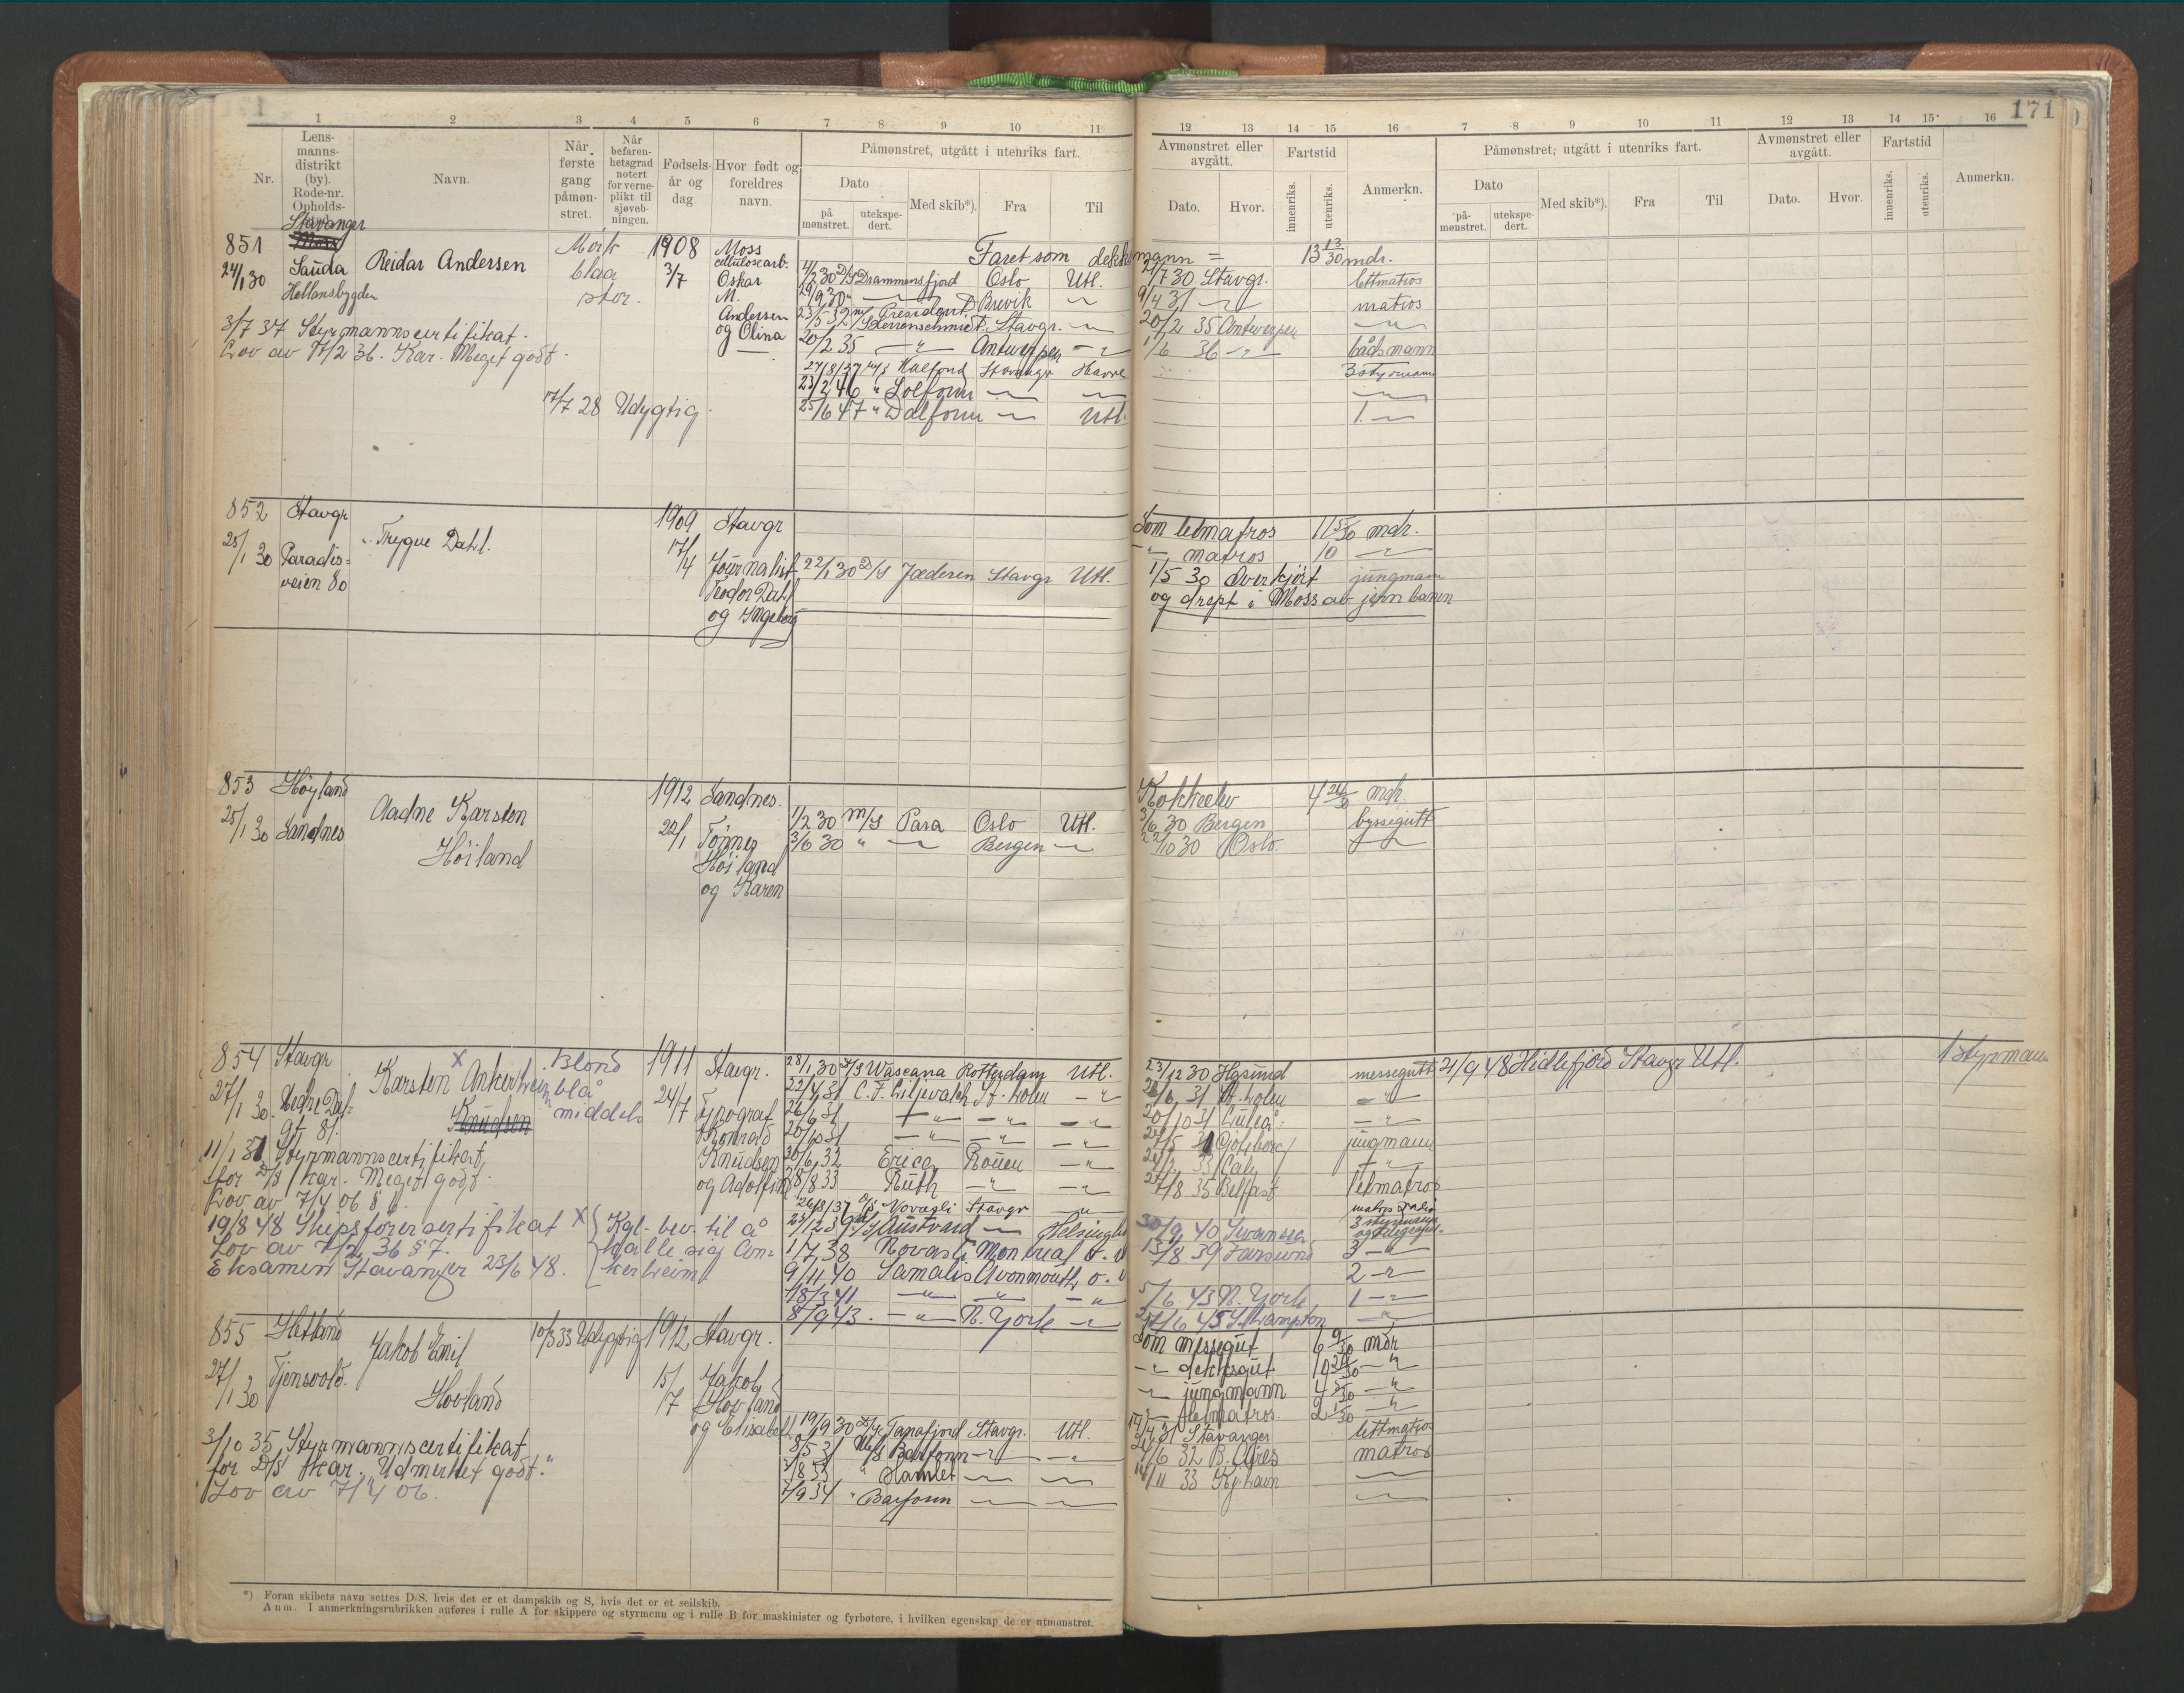 171
1 2 3 4 5 6 7 8 9 10 11
12 13 14 15 16 7 8 9 10 11 12 13 14 15 16
Nr.
Lens-
manns-
distrikt
(by).
Rode-nr.
Opholds-
Navn.
Når
første
gang
påmøn-
stret.
Når
befaren-
hetsgrad
notert
for verne-
plikt til
sjøveb-
ningen.
Fødsels-
år og
dag
Hvor født og
foreldres
navn.
Påmønstret, utgått i utenriks fart.
Dato
på
mønstret.
utekspe-
dert.
Med skib*).
Fra
Til
Avmønstret eller
avgått.
Dato.
Hvor.
Fartstid
innenriks.
utenriks.
Anmerkn.
Påmønstret, utgått i utenriks fart.
Dato
på-
mønstret.
utekspe-
dert.
Med skib*).
Fra
Til
Avmønstret eller
avgått.
Dato.
Hvor.
Fartstid
innenriks.
utenriks.
Anmerkn.
Stavanger
851
24/1 30
Sauda
Hellansbygden
Reidar Andersen
Mørk
blaa
stor.
1908
3/7
Moss
cellulosearb.
Oskar
M.
Andersen
og Olina
3/7 37 Styrmannscertifikat.
Lov av 7/2 36. Kar. Meget godt.
17/7 28 Udygtig.
Faret som dekksmann = 13 13/30 mdr.
4/2 30 D/S Drammensfjord Oslo Utl. 21/7 30 Stavgr. lettmatros
29/9 30 Brevik 9/4 31 matros
23/5 32 M/T President
Sterrenschmidt. Stavgr. 20/2 35 Antwerpen
20/2 35 Antwerpen 1/6 36 båtsmann
27/8 37 M/S Kalfond Stavangr Havre 3 styrmann
23/2 46 " Solfonn
25/6 47 " Dalfonn Utl. 1.
852
25/1 30
Stavgr
Paradis-
veien 80
Trygve Dahl.
1909
17/4
Stavgr
Journalist
Teodor Dahl
og Ingeborg
22/1 30 D/S Jæderen Stavgr Utl.
Som letmatros 11 5/30 mdr.
matros 10
1/5 30 Overkjört jungmann
og drept i Moss av jernbanen
853
25/1 30
Høyland
Sandnes
Aadne Karsten
Höiland
1912
22/1
Sandnes.
Tønnes
Höiland
og Karen
1/2 30 M/S Para Oslo Utl.
3/6 30 " Bergen
Kokkeelev 4 24/30 mdr.
3/6 30 Bergen byssegutt
22/10 30 Oslo.
854
27/1 30.
Stavgr
Nedre Dal-
gt 81.
Karsten Ankerheim
Knudsen
Blond
blå
middels
1911
24/7
Stavgr.
Typograf
Konrad
Knudsen
og Adolfine
11/1 37 Styrmannscertifikat
for D/S Kar. Meget godt.
Lov av 7/4 06 §
19/8 48 Skipsførercertifikat
Lov av 7/2 36 § 7.
Eksamen Stavanger 23/6 48.
X Kgl. bev. til å
kalle sig An-
kerheim
28/1 30 D/S Wascana Rotterdam Utl. 23/12 30 Hgsund messegutt
22/4 31 C. F. Liljevalch St. holm 26/6 31 St. holm
26/6 31 20/10 31 Luleå.
20/10 31 Gøteborg jungmann
30/6 32 Erica Rouen
28/8 33 Ruth 27/8 35 Belfast letmatros
26/8 37 Novasli Stavgr
Austvard Helsingb 30/9 40 Swansea 3 styrmann
1/7 38 Novasli Montreal 13/8 39 Farsund 3
9/11 40 Samalis Avonmouth 2
18/3 41 5/6 43 N. York 1
8/9 43. N. York S. hampton
21/9 48 Hidlefjord Stavgr Utl. 1 styrmann
855
27/1 30
Hetland
Tjensvold.
Jakob Emil
Hovland
10/3 33 Udygtig
1912
15/7
Stavgr.
Jakob
Hovland
og Elisabeth
3/10 35 Styrmannscertifikat
for D/S Kar. "Udmerket godt."
Lov av 7/4 06.
Som messegut 6 9/30 mdr
deksgut 10 24/30
jungmann 4 5/30
letmatros 2 1/30
19/9 30 D/S Tanafjord Stavgr. Utl. Stavanger lettmatros
8/5 31 M/S Barfonn 24/6 32 B. Aires matros
/8 33 " Hamlet 14/11 33 Kj. havn
7/9 34 " Barfonn
*) Foran skibets navn settes D/S, hvis det er et dampskib og S, hvis det er et seilskib.
Anm. I anmerkningsrubrikken anføres i rulle A for skippere og styrmenn og i rulle B for maskinister og fyrbøtere, i hvilken egenskap de er utmønstret.